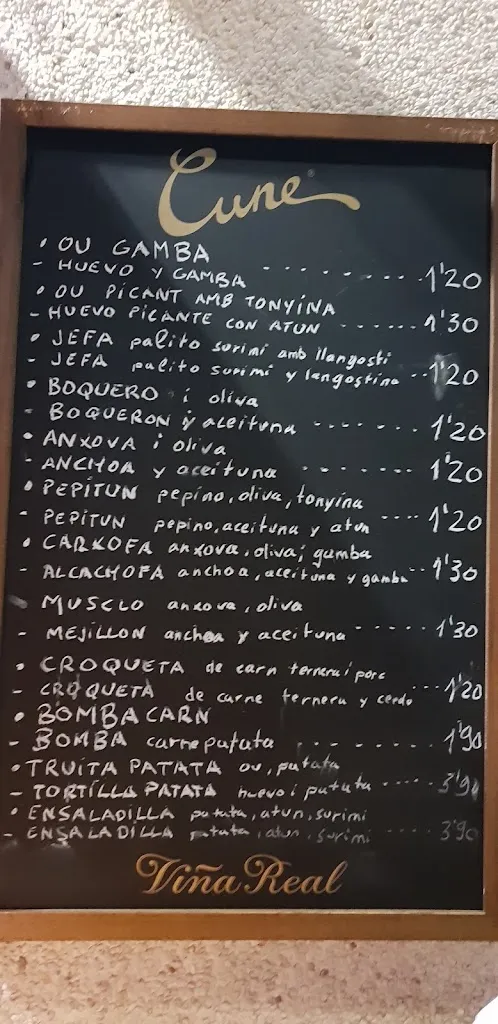 Cune
• OU GAMBA
- HUEVO Y GAMBA - - - - - - - 1'20
• OU PICANT AMB TONYINA
- HUEVO PICANTE CON ATUN - - - - - - 1'30
• JEFA palito surimi amb llangosti
- JEFA palito surimi y langostino - - 1'20
• BOQUERO i oliva
- BOQUERON y aceituna - - - - - - - 1'20
• ANXOVA i oliva
- ANCHOA y aceituna - - - - - - - 1'20
• PEPITUN pepino, oliva, tonyina
- PEPITUN pepino, aceituna y atun - - - - 1'20
• CARXOFA anxova, oliva, gamba
- ALCACHOFA anchoa, aceituna y gamba - - 1'30
MUSCLO anxova, oliva
- MEJILLON anchoa y aceituna - - - - - 1'30
• CROQUETA de carn ternera i porc
- CROQUETA de carne ternera y cerdo - - - 1'20
• BOMBA CARN
- BOMBA carne patata - - - - - - - 1'90
• TRUITA PATATA ou, patata
- TORTILLA PATATA huevo i patata - - - - 3'90
• ENSALADILLA patata, atun, surimi
- ENSALADILLA patata, atun, surimi - - - - 3'90
Viña Real